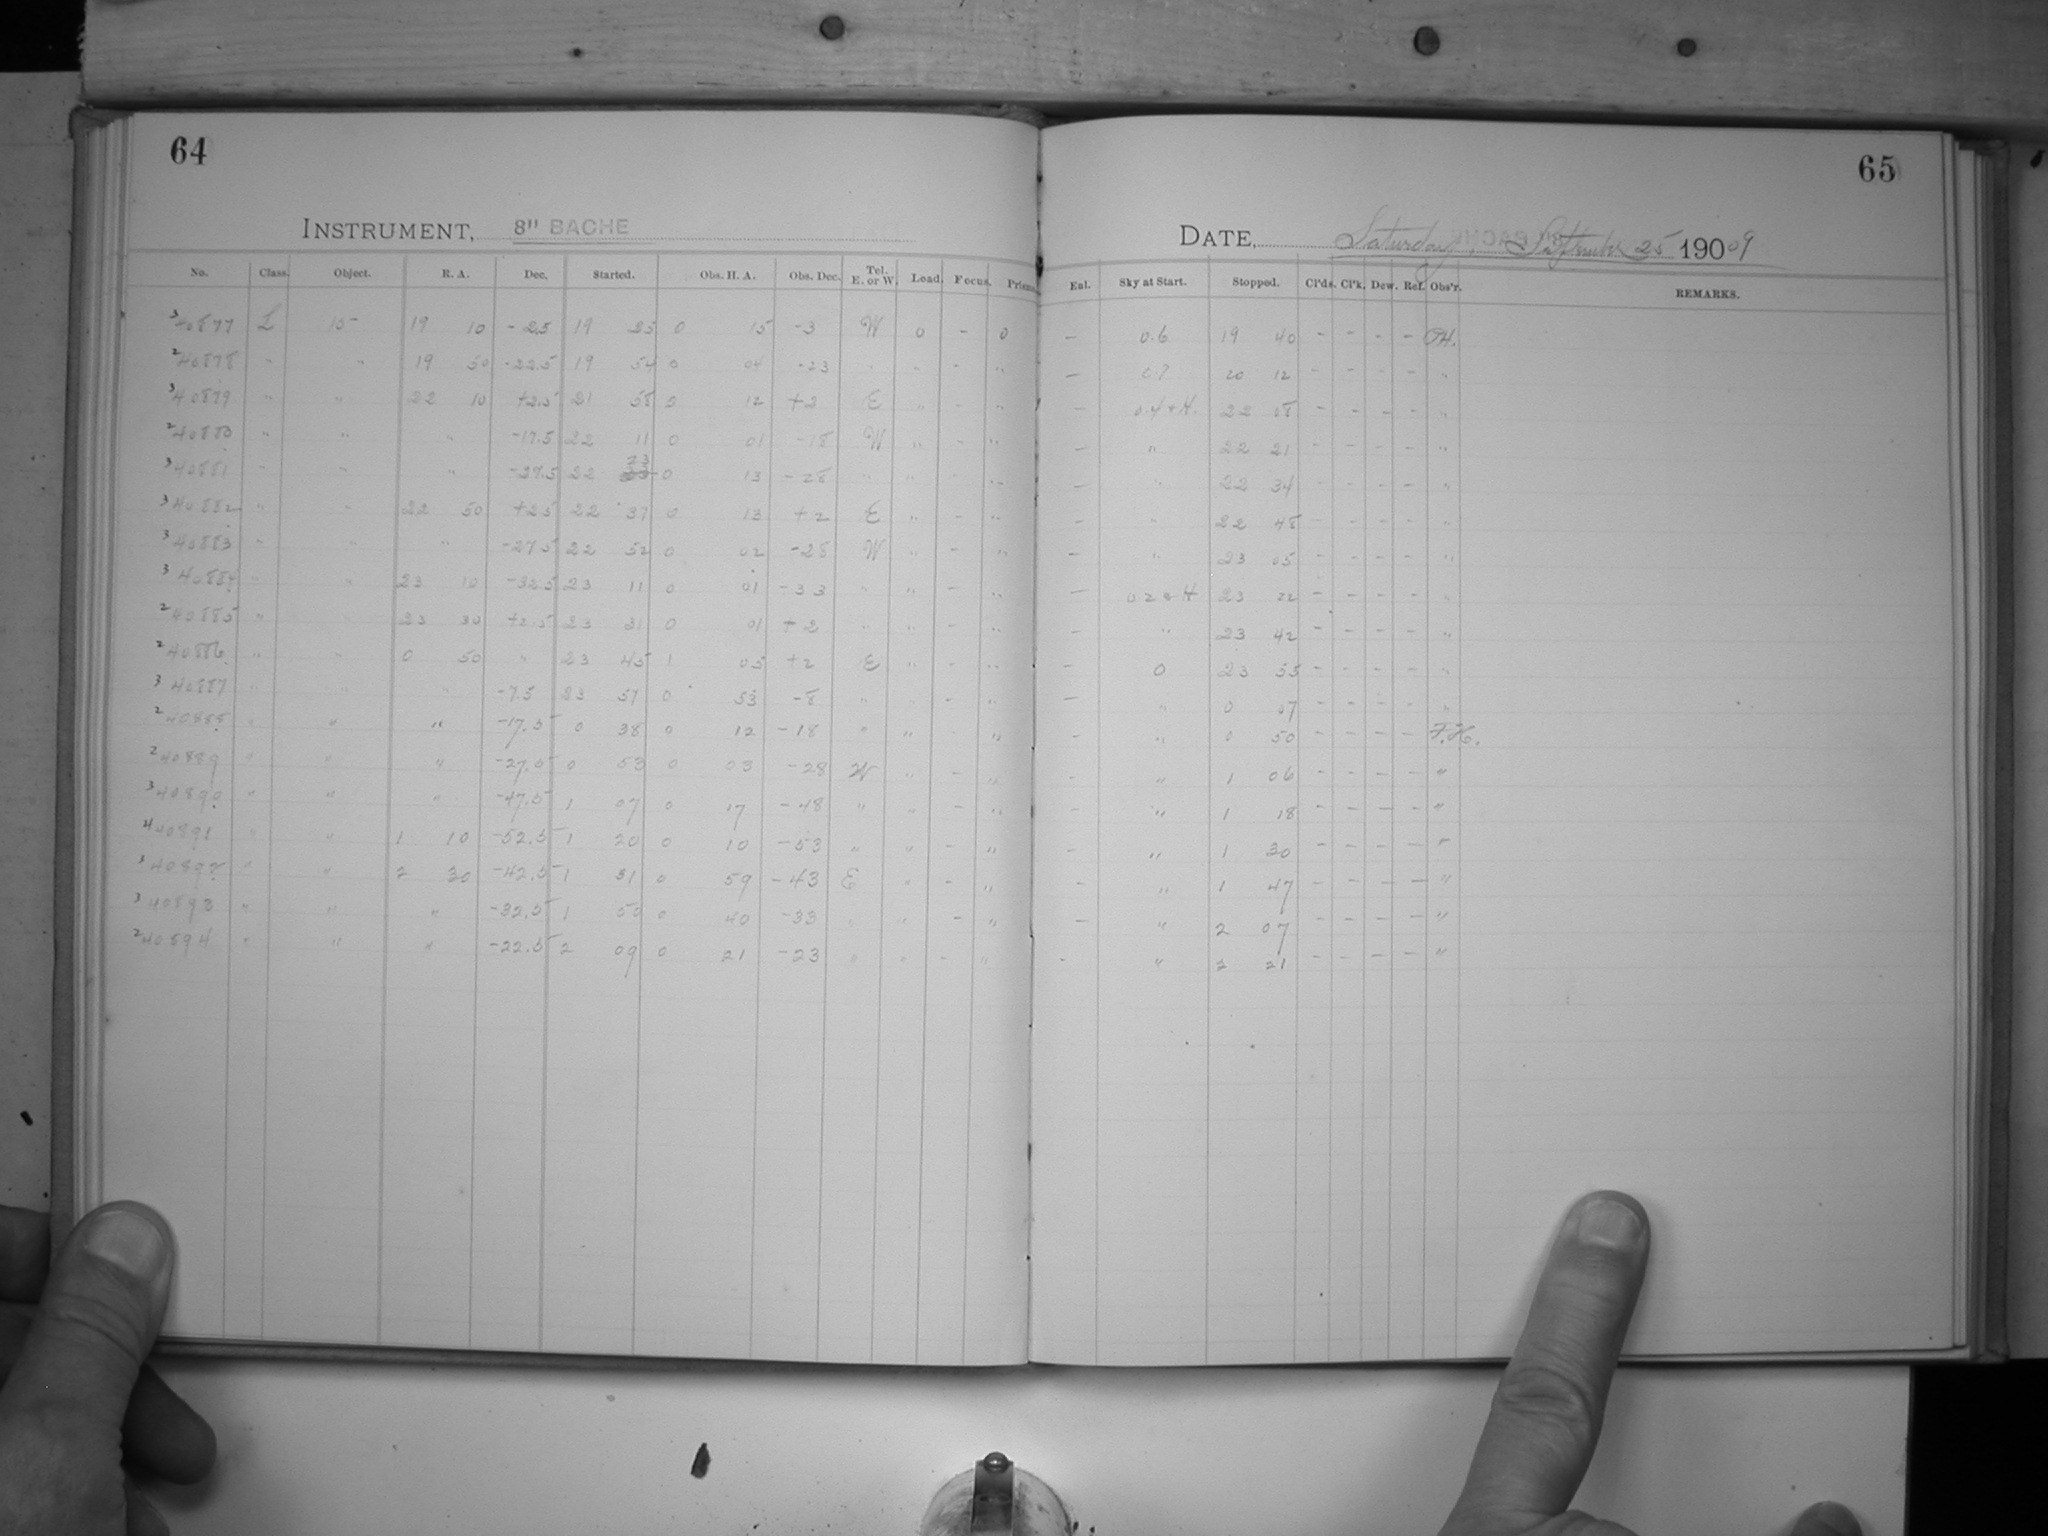 64
INSTRUMENT, 8" BACHE
No. Class. Object. R. A. Dec. Started. Obs. H. A. Obs. Dec. Tel. E. or W. Load. Focus. Prism.
3 40877 L 15 19 10 -2.5 19 25 0 15 -3 W 0 - 0
2 40878 " " 19 50 -22.5 19 54 0 04 -23 " " - "
3 40879 " " 22 10 +2.5 21 58 0 12 +2 E " - "
2 40880 " " " -17.5 22 11 0 01 -18 W " - "
3 40881 " " " -27.5 22 23 0 13 -28 " " - "
3 40882 " " 22 50 +2.5 22 37 0 13 +2 E " - "
3 40883 " " " -27.5 22 52 0 02 -28 W " - "
3 40884 " " 23 10 -32.5 23 11 0 01 -33 " " - "
2 40885 " " 23 30 +2.5 23 31 0 01 +2 " " - "
2 40886 " " 0 50 " 23 45 1 05 +2 E " - "
3 40887 " " " -7.5 23 57 0 53 -8 " " - "
2 40888 " " " -17.5 0 38 0 12 -18 " " - "
2 40889 " " " -27.5 0 53 0 03 -28 W " - "
3 40890 " " " -47.5 1 07 0 17 -48 " " - "
4 40891 " " 1 10 -52.5 1 20 0 10 -53 " " - "
3 40892 " " 2 30 -42.5 1 31 0 59 -43 E " - "
3 40893 " " " -32.5 1 50 0 40 -33 " " - "
2 40894 " " " -22.5 2 09 0 21 -23 " " - "
65
DATE, Saturday, September 25 190 09
Enl. Sky at Start. Stopped. Cl'ds. Cl'k. Dew. Ref. Obs'r. REMARKS.
- 0.6 19 40 - - - -
- 0.7 20 12 - - - - "
- 0.4 + H. 22 08 - - - - "
- " 22 21 - - - - "
- " 22 34 - - - - "
- " 22 48 - - - - "
- " 23 05 - - - - "
- 0.2 + H 23 22 - - - - "
- " 23 42 - - - - "
- 0 23 55 - - - - "
- " 0 07 - - - - "
- " 0 50 - - - -
- " 1 06 - - - - "
- " 1 18 - - - - "
" 1 30 - - - - "
- " 1 47 - - - - "
- " 2 07 - - - - "
- " 2 21 - - - - "